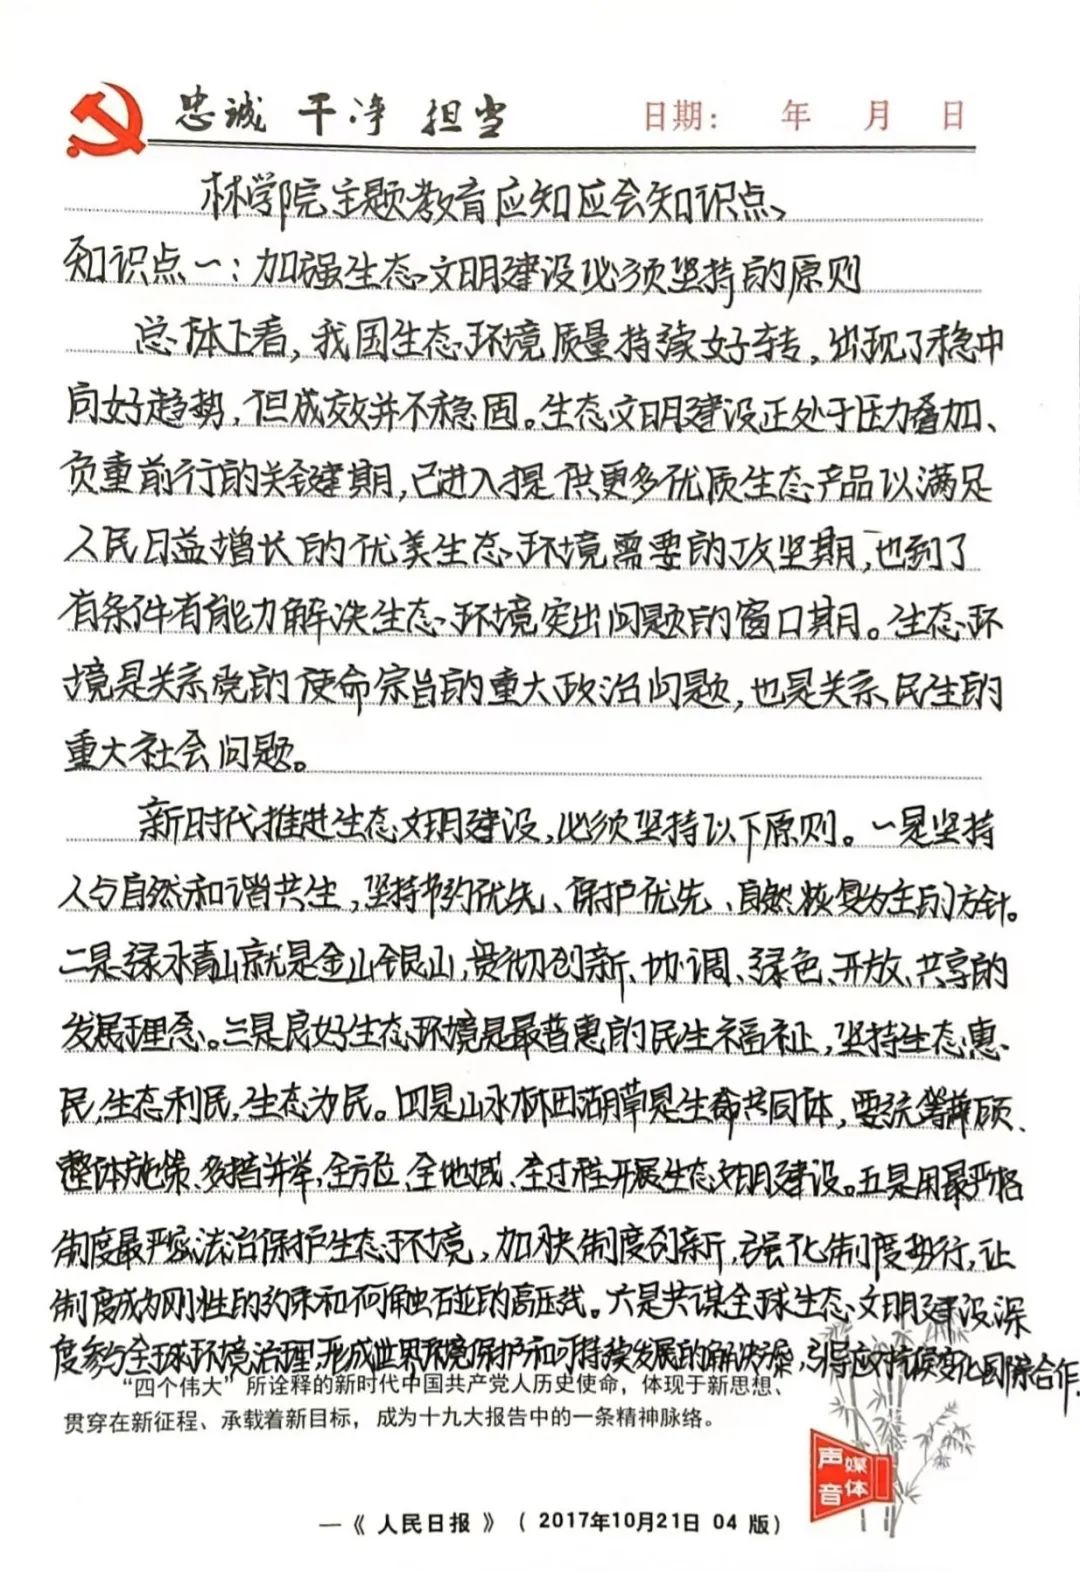 忠诚 干净 担当 日期: 年 月 日
林学院主题教育应知应会知识点、
知识点一:加强生态文明建设必须坚持的原则
总体上看,我国生态环境质量持续好转,出现了稳中
向好趋势,但成效并不稳固。生态文明建设正处于压力叠加、
负重前行的关键期,已进入提供更多优质生态产品以满足
人民日益增长的优美生态环境需要的攻坚期,也到了
有条件有能力解决生态环境突出问题的窗口期。生态环
境是关系党的使命宗旨的重大政治问题,也是关系民生的
重大社会问题。
新时代推进生态文明建设,必须坚持以下原则。一是坚持
人与自然和谐共生,坚持节约优先、保护优先、自然恢复为主的方针。
二是绿水青山就是金山银山,贯彻创新、协调、绿色、开放、共享的
发展理念。三是良好生态环境是最普惠的民生福祉,坚持生态惠
民,生态利民,生态为民。四是山水林田湖草是生命共同体,要统筹兼顾、
整体施策、多措并举,全方位、全地域、全过程开展生态文明建设。五是用最严格
制度最严密法治保护生态环境,加快制度创新,强化制度执行,让
制度成为刚性的约束和不可触碰的高压线。六是共谋全球生态文明建设,深
度参与全球环境治理,形成世界环境保护和可持续发展的解决方案,引导应对气候变化国际合作.
“四个伟大”所诠释的新时代中国共产党人历史使命,体现于新思想、
贯穿在新征程、承载着新目标,成为十九大报告中的一条精神脉络。
声音 媒体
—《 人民日报 》( 2017年10月21日 04 版)